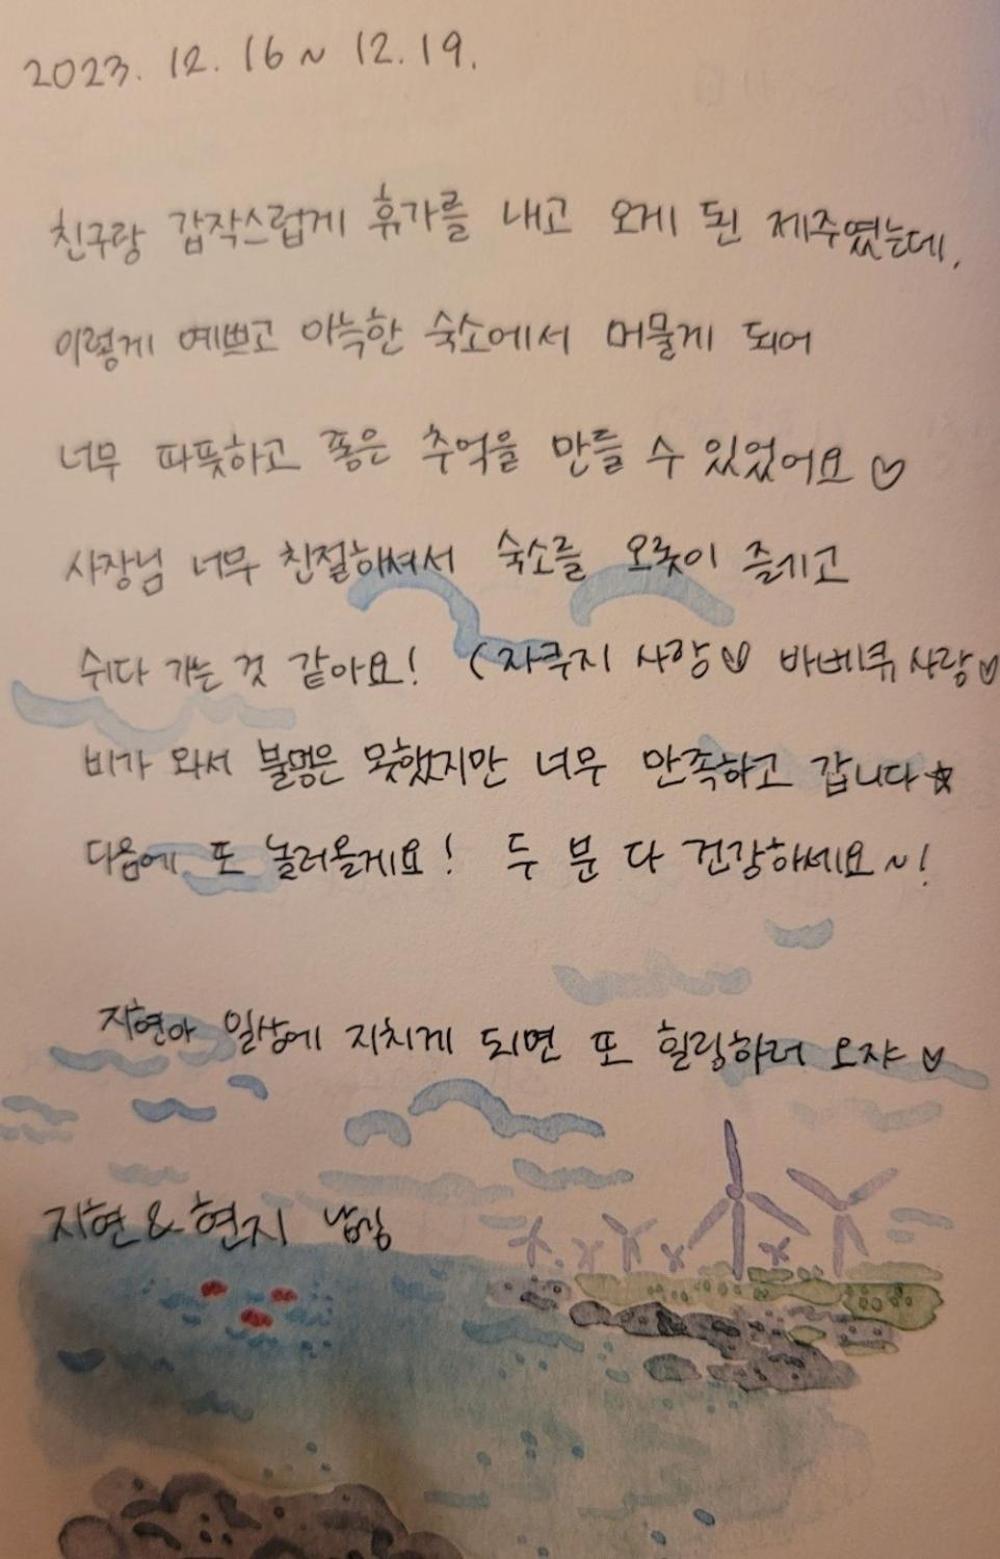 2023. 12. 16 ~ 12. 19.
친구랑 갑작스럽게 휴가를 내고 오게 된 제주였는데,
이렇게 예쁘고 아늑한 숙소에서 머물게 되어
너무 따뜻하고 좋은 추억을 만들 수 있었어요 ♡
사장님 너무 친절하셔서 숙소를 오롯이 즐기고
쉬다 가는 것 같아요! (자쿠지 사랑♡ 바베큐 사랑♡
비가 와서 불멍은 못했지만 너무 만족하고 갑니다☆
다음에 또 놀러올게요! 두 분 다 건강하세요~!
자현아 일상에 지치게 되면 또 힐링하러 오쟈♡
자현 & 현지 남김